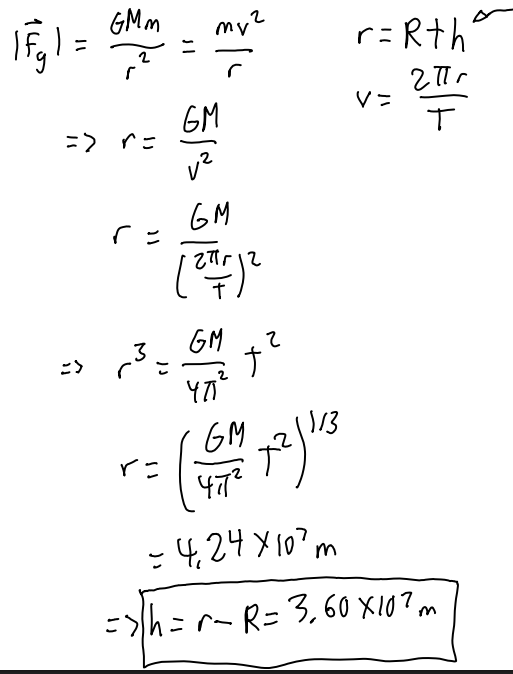 |F⃗g| = GMm/r² = mv²/r
r = R + h
v = 2πr/T
=> r = GM/v²
r = GM/(2πr/T)²
=> r³ = GM/4π² T²
r = (GM/4π² T²)^1/3
= 4.24 × 10⁷ m
=> h = r - R = 3.60 × 10⁷ m